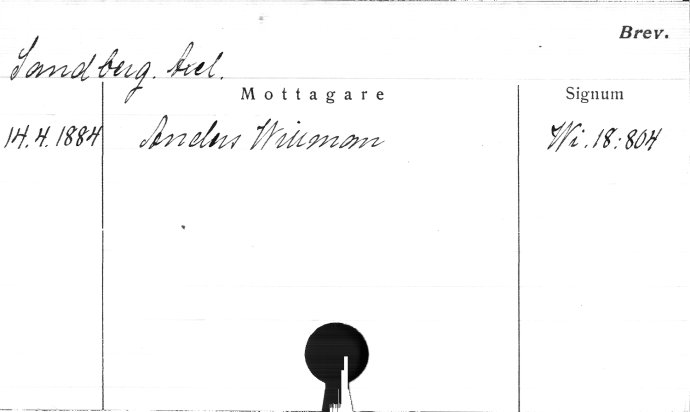 Brev.
Sandberg. Axel.
Mottagare Signum
14.4.1884 Anders Willman Wi.18:804